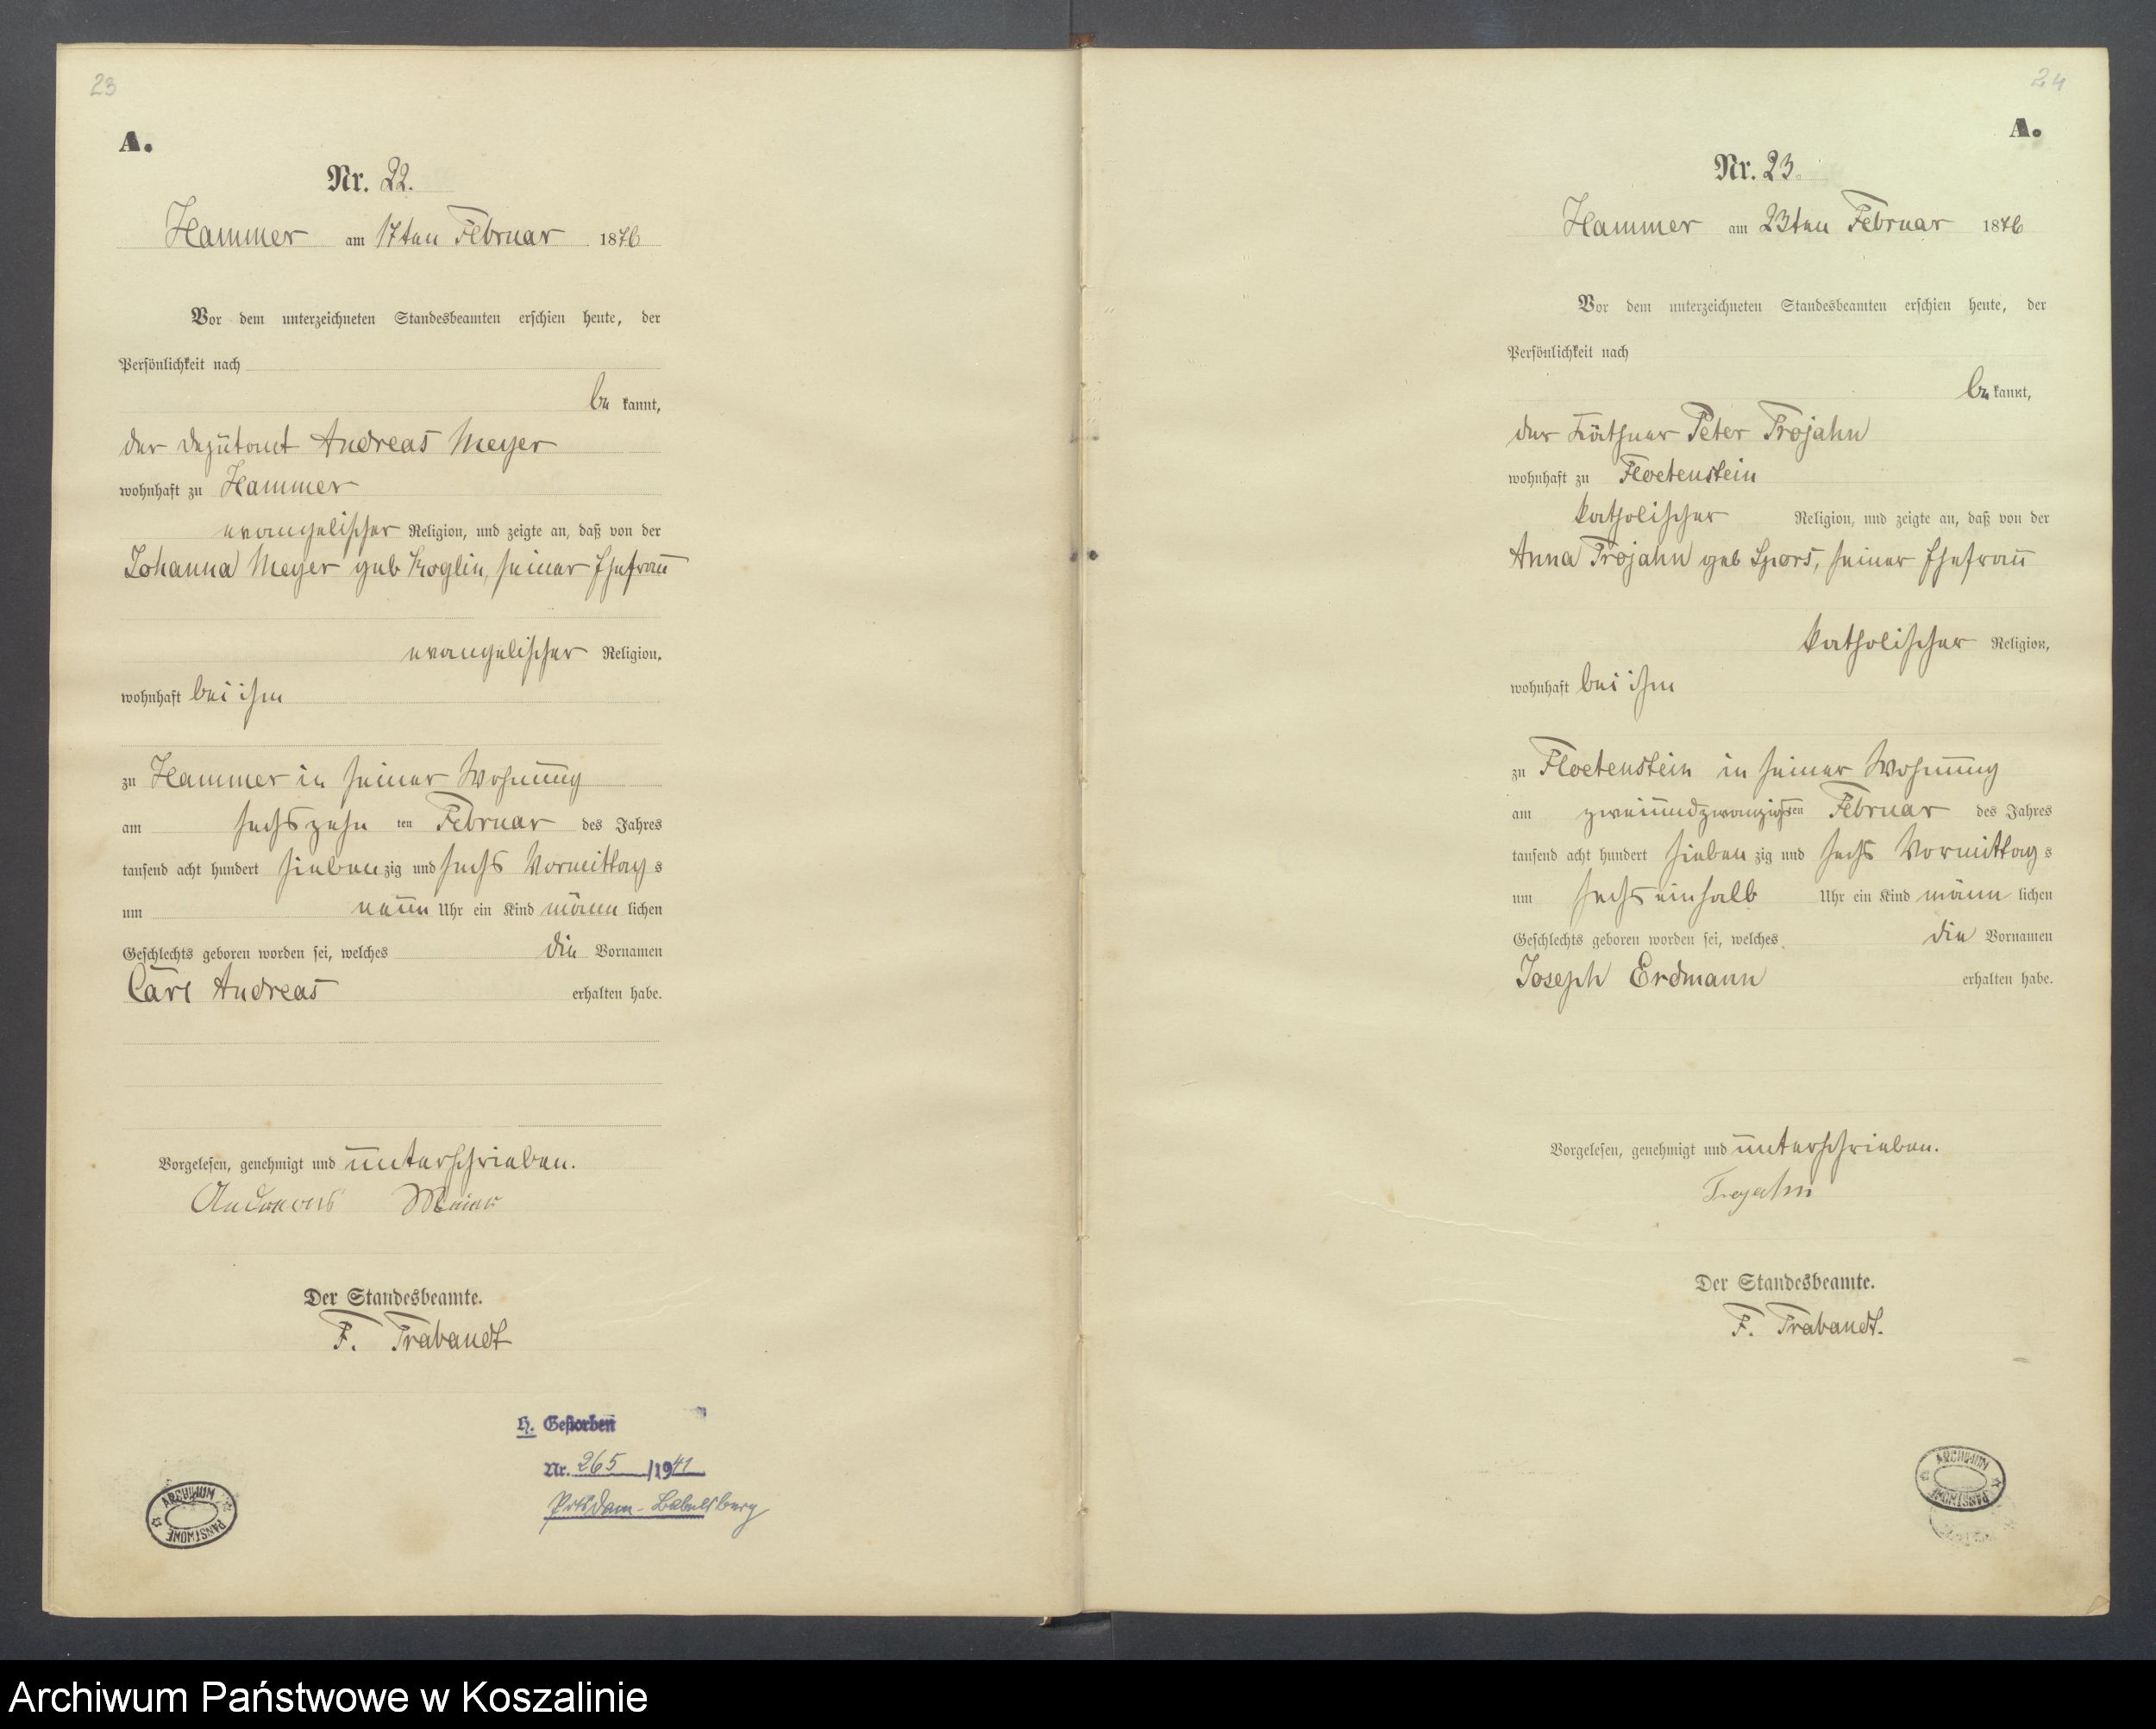 23
A.
Nr. 22.
Hammer am 17ten Februar 1876
Vor dem unterzeichneten Standesbeamten erschien heute, der
Persönlichkeit nach
be kannt,
der Deputant Andreas Meyer
wohnhaft zu Hammer
evangelischer Religion, und zeigte an, daß von der
Johanna Meyer geb Koglin, seiner Ehefrau
evangelischer Religion,
wohnhaft bei ihm
zu Hammer in seiner Wohnung
am sechszehn ten Februar des Jahres
tausend acht hundert sieben zig und sechs Vormittag s
um neun Uhr ein Kind männ lichen
Geschlechts geboren worden sei, welches die Vornamen
Carl Andreas erhalten habe.
Vorgelesen, genehmigt und unterschrieben.
Andreas Meier
Der Standesbeamte.
F. Trabandt
H. Gestorben
Nr. 265 /1941
Potsdam-Babelsberg
ARCHIWUM PAŃSTWOWE
24
A.
Nr. 23.
Hammer am 23ten Februar 1876
Vor dem unterzeichneten Standesbeamten erschien heute, der
Persönlichkeit nach
be kannt,
der Käthner Peter Trojahn
wohnhaft zu Floetenstein
katholischer Religion, und zeigte an, daß von der
Anna Trojahn geb Spors, seiner Ehefrau
katholischer Religion,
wohnhaft bei ihm
zu Floetenstein in seiner Wohnung
am zweiundzwanzigsten Februar des Jahres
tausend acht hundert sieben zig und sechs Vormittag s
um sechseinhalb Uhr ein Kind männ lichen
Geschlechts geboren worden sei, welches die Vornamen
Joseph Erdmann erhalten habe.
Vorgelesen, genehmigt und unterschrieben.
Trojahn
Der Standesbeamte.
F. Trabandt.
ARCHIWUM PAŃSTWOWE
Archiwum Państwowe w Koszalinie